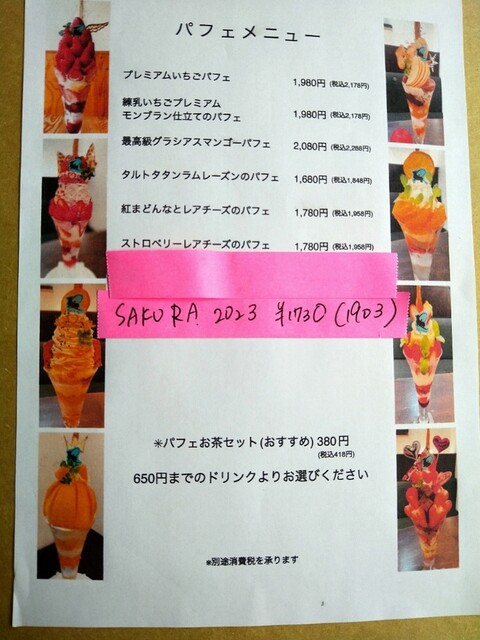 パフェメニュー
プレミアムいちごパフェ 1,980円 (税込2,178円)
練乳いちごプレミアム
モンブラン仕立てのパフェ 1,980円 (税込2,178円)
最高級グラシアスマンゴーパフェ 2,080円 (税込2,288円)
タルトタタンラムレーズンのパフェ 1,680円 (税込1,848円)
紅まどんなとレアチーズのパフェ 1,780円 (税込1,958円)
ストロベリーレアチーズのパフェ 1,780円 (税込1,958円)
SAKURA 2023 ¥1730 (1903)
*パフェお茶セット(おすすめ) 380円
(税込418円)
650円までのドリンクよりお選びください
*別途消費税を承ります